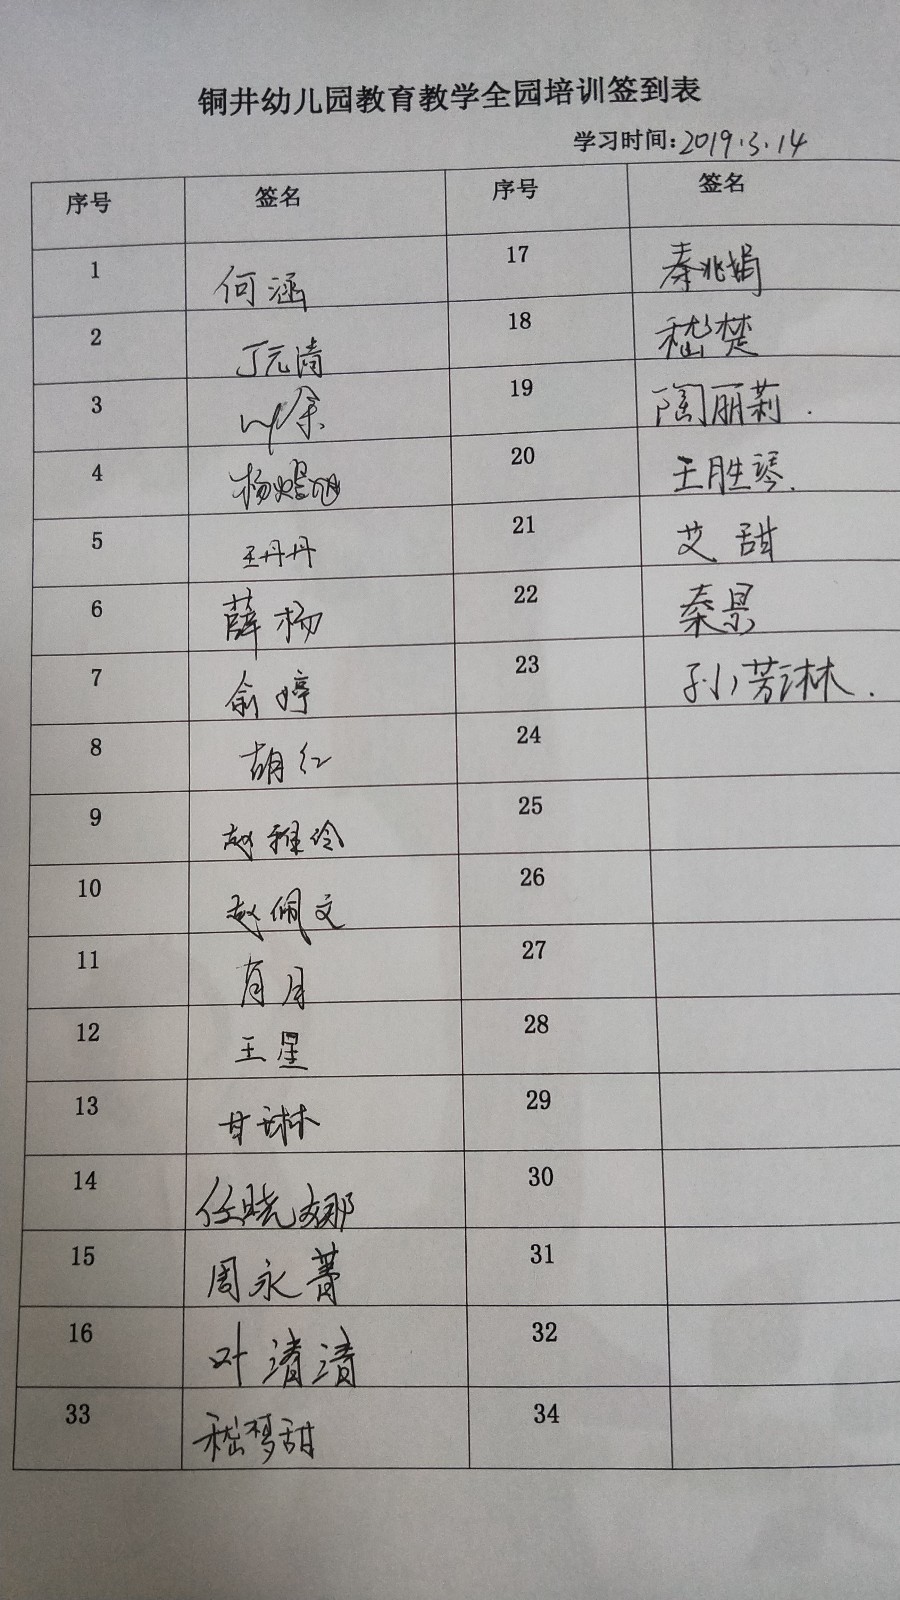 铜井幼儿园教育教学全园培训签到表
学习时间:2019.3.14
序号 签名 序号 签名
1 何涵 17 秦兆娟
2 丁元清 18 嵇楚
3 叶余 19 陶丽莉.
4 杨煜旭 20 王胜琴.
5 王丹丹 21 艾甜
6 薛杨 22 秦景
7 俞婷 23 孙芳琳.
8 胡红 24
9 赵雅伶 25
10 赵佩文 26
11 肖月 27
12 王星 28
13 甘琳 29
14 任晓娜 30
15 周永菁 31
16 叶清清 32
33 嵇梦甜 34